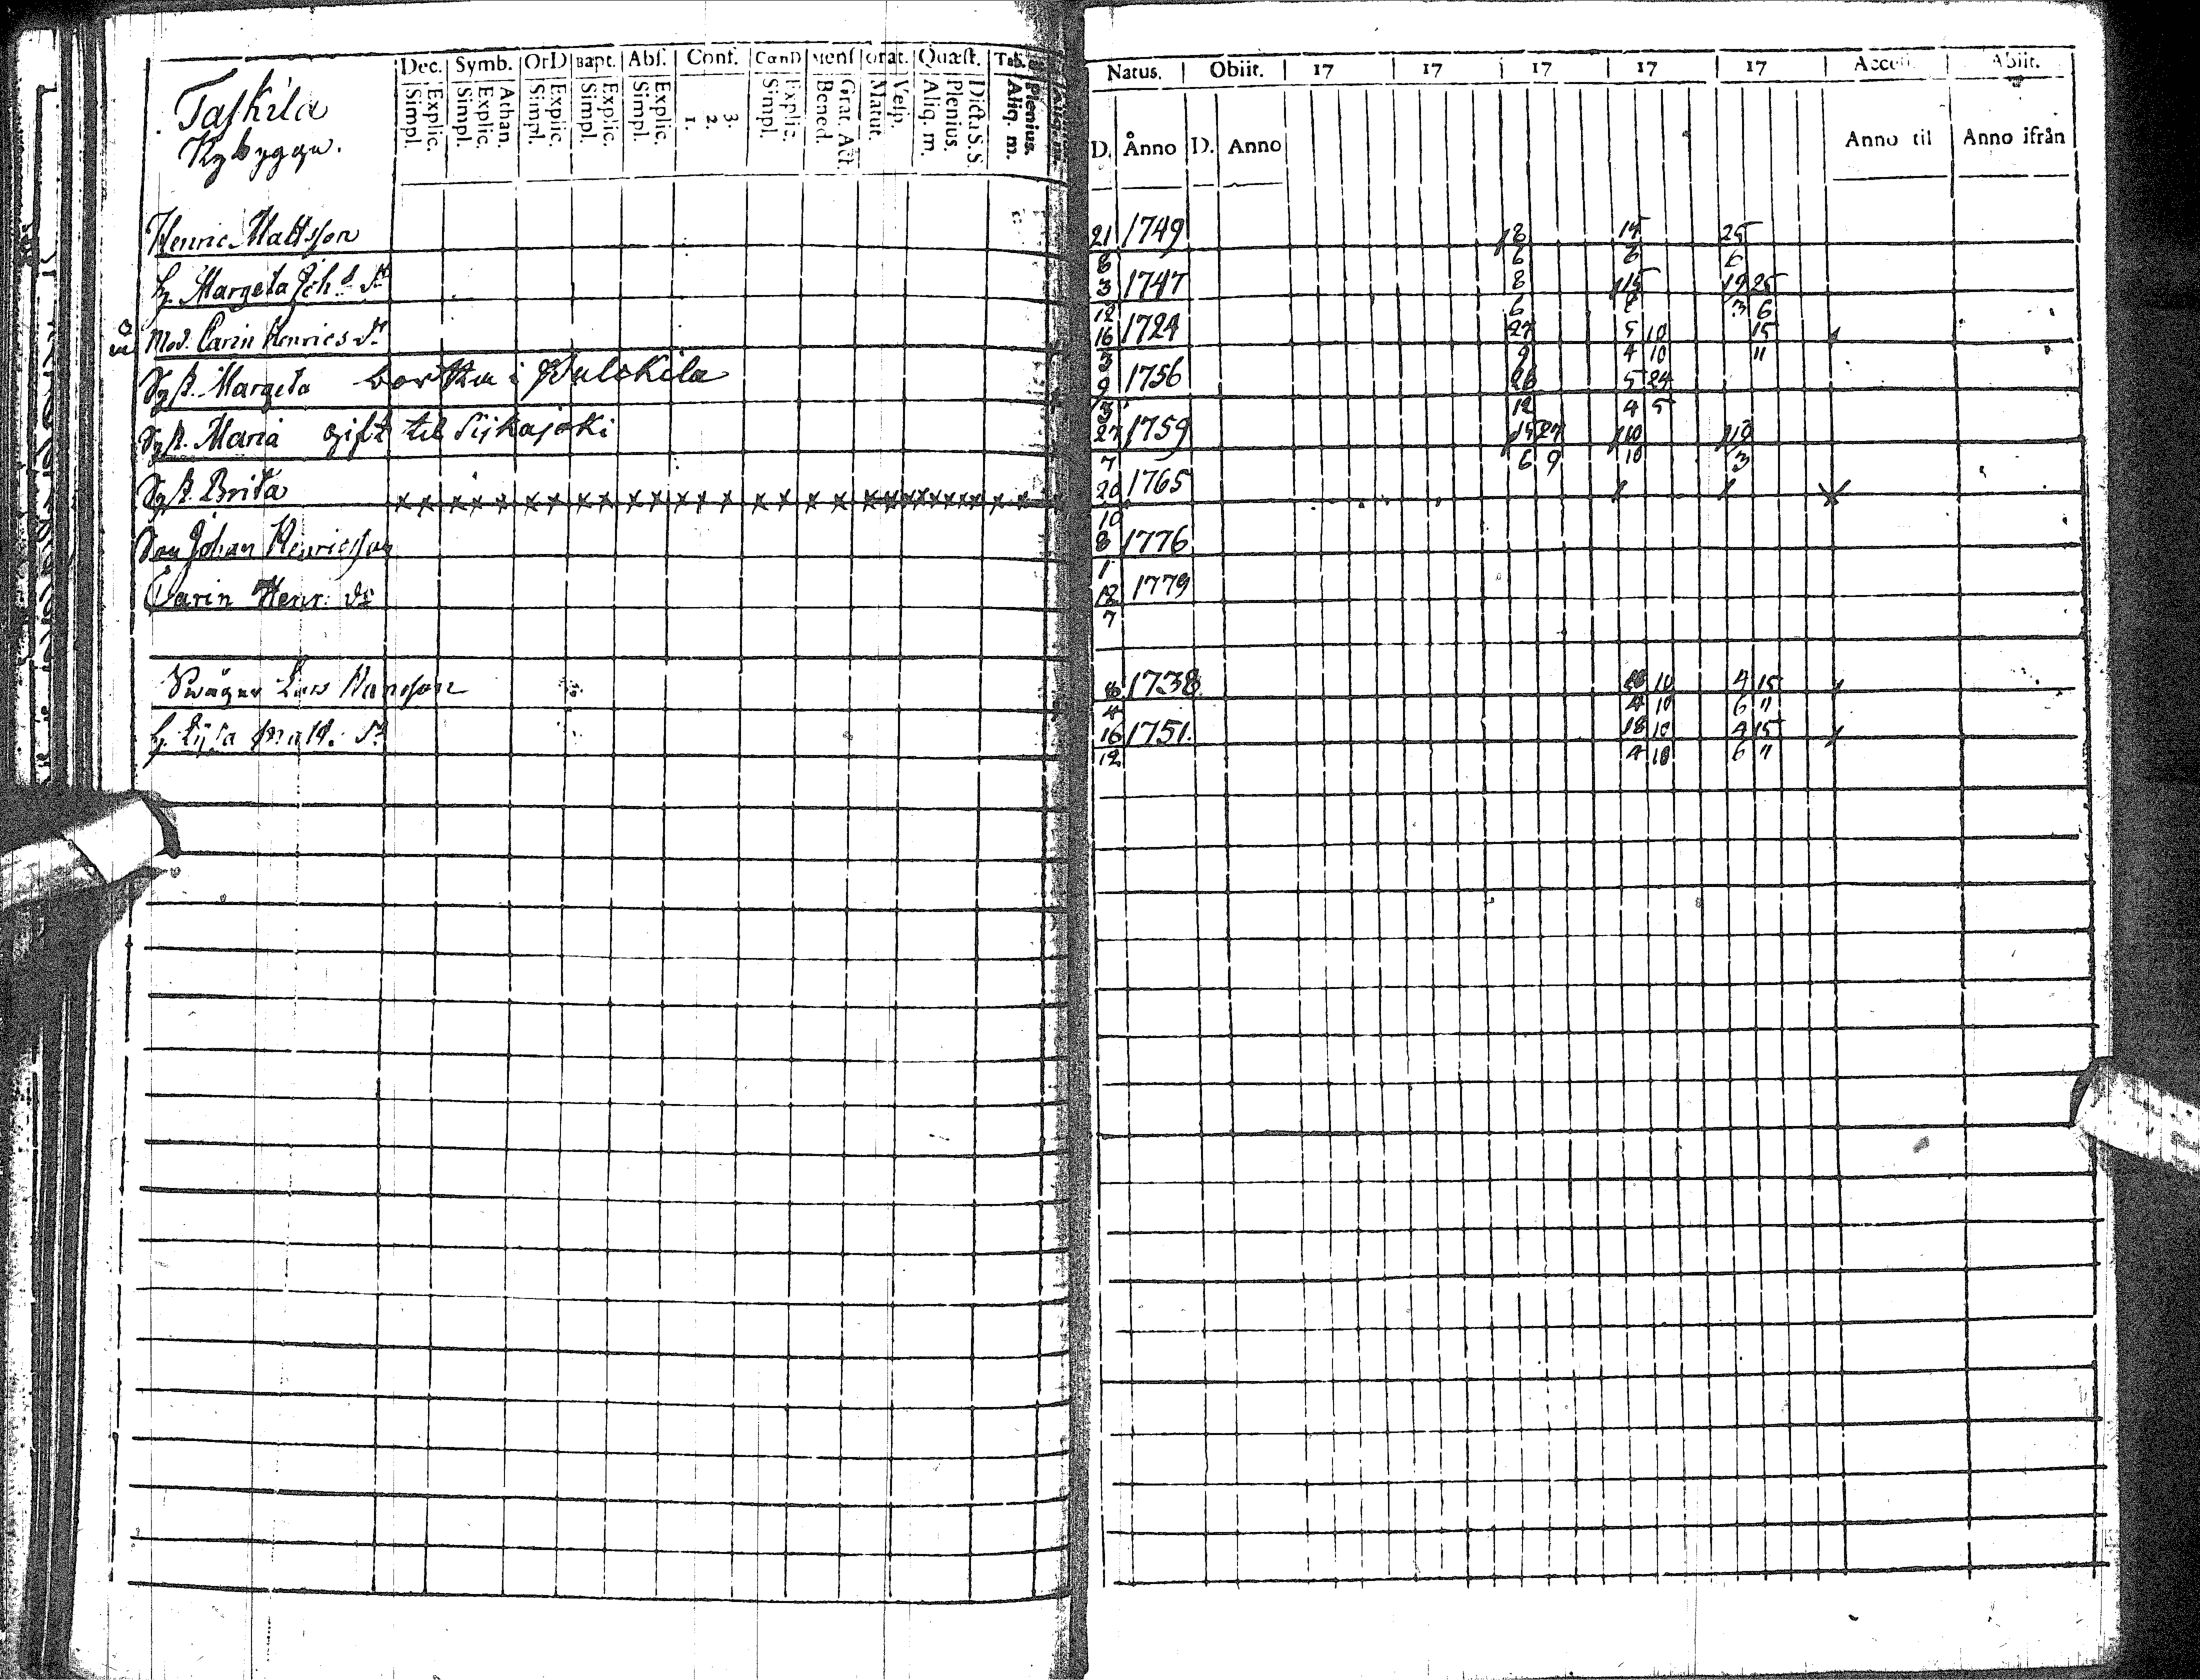 Dec. Symb. OrD Bapt. Abs. Conf. CœnD Mens Orat. Quæst. Tab.
Simpl. Explic. Simpl. Explic. Athan. Simpl. Explic. Simpl. Explic. Simpl. Explic. 1. 2. 3. Simpl. Explic. Bened. Grat. Act. Matut. Vesp. Aliq. m. Plenius. Dicta S.S. Aliq. m. Plenius.
Taskila
Nybygge.
Henric Mattsson
h. Margeta Joh.s dr
Mod. Carin Henrics dr
Syst. Margeta bor
Syst. Maria gift til Sijkajoki
Syst. Brita
Son Johan Henricsson
Carin Henr. dr
Swåger Lars
h. Lijsa Matts. dr
Natus. Obiit. 17 17 17 17 17 Abiit.
D. Anno D. Anno Anno til Anno ifrån
21 1749 8 15 25
8 6 6 6
3 1747 8 15 19 25
12 6 6 3 6
16 1724 27 5 10 15
3 9 4 10 11
9 1756 26 5 24
3 12 4 5
27 1759 15 27 10 13
7 6 9 10 3
20 1765
10
8 1776
1
12 1779
7
1738 10 4 15
4 4 10 6 11
16 1751. 18 10 4 15
12 4 10 6 11